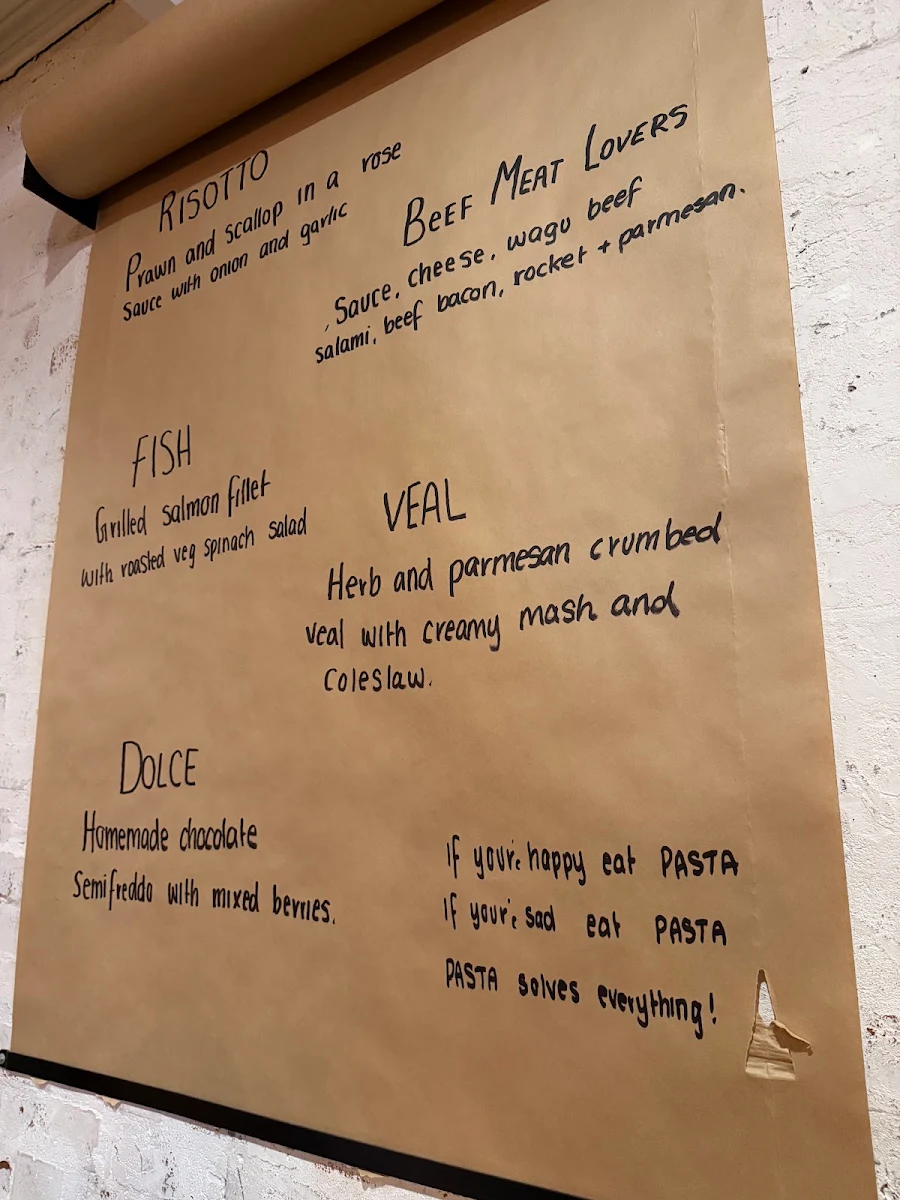 RISOTTO
Prawn and scallop in a rose
Sauce with onion and garlic
BEEF MEAT LOVERS
Sauce, cheese, wagu beef
salami, beef bacon, rocket + parmesan.
FISH
Grilled salmon fillet
with roasted veg spinach salad
VEAL
Herb and parmesan crumbed
veal with creamy mash and
Coleslaw.
DOLCE
Homemade chocolate
Semifreddo with mixed berries.
If your'e happy eat PASTA
If your'e sad eat PASTA
PASTA solves everything!